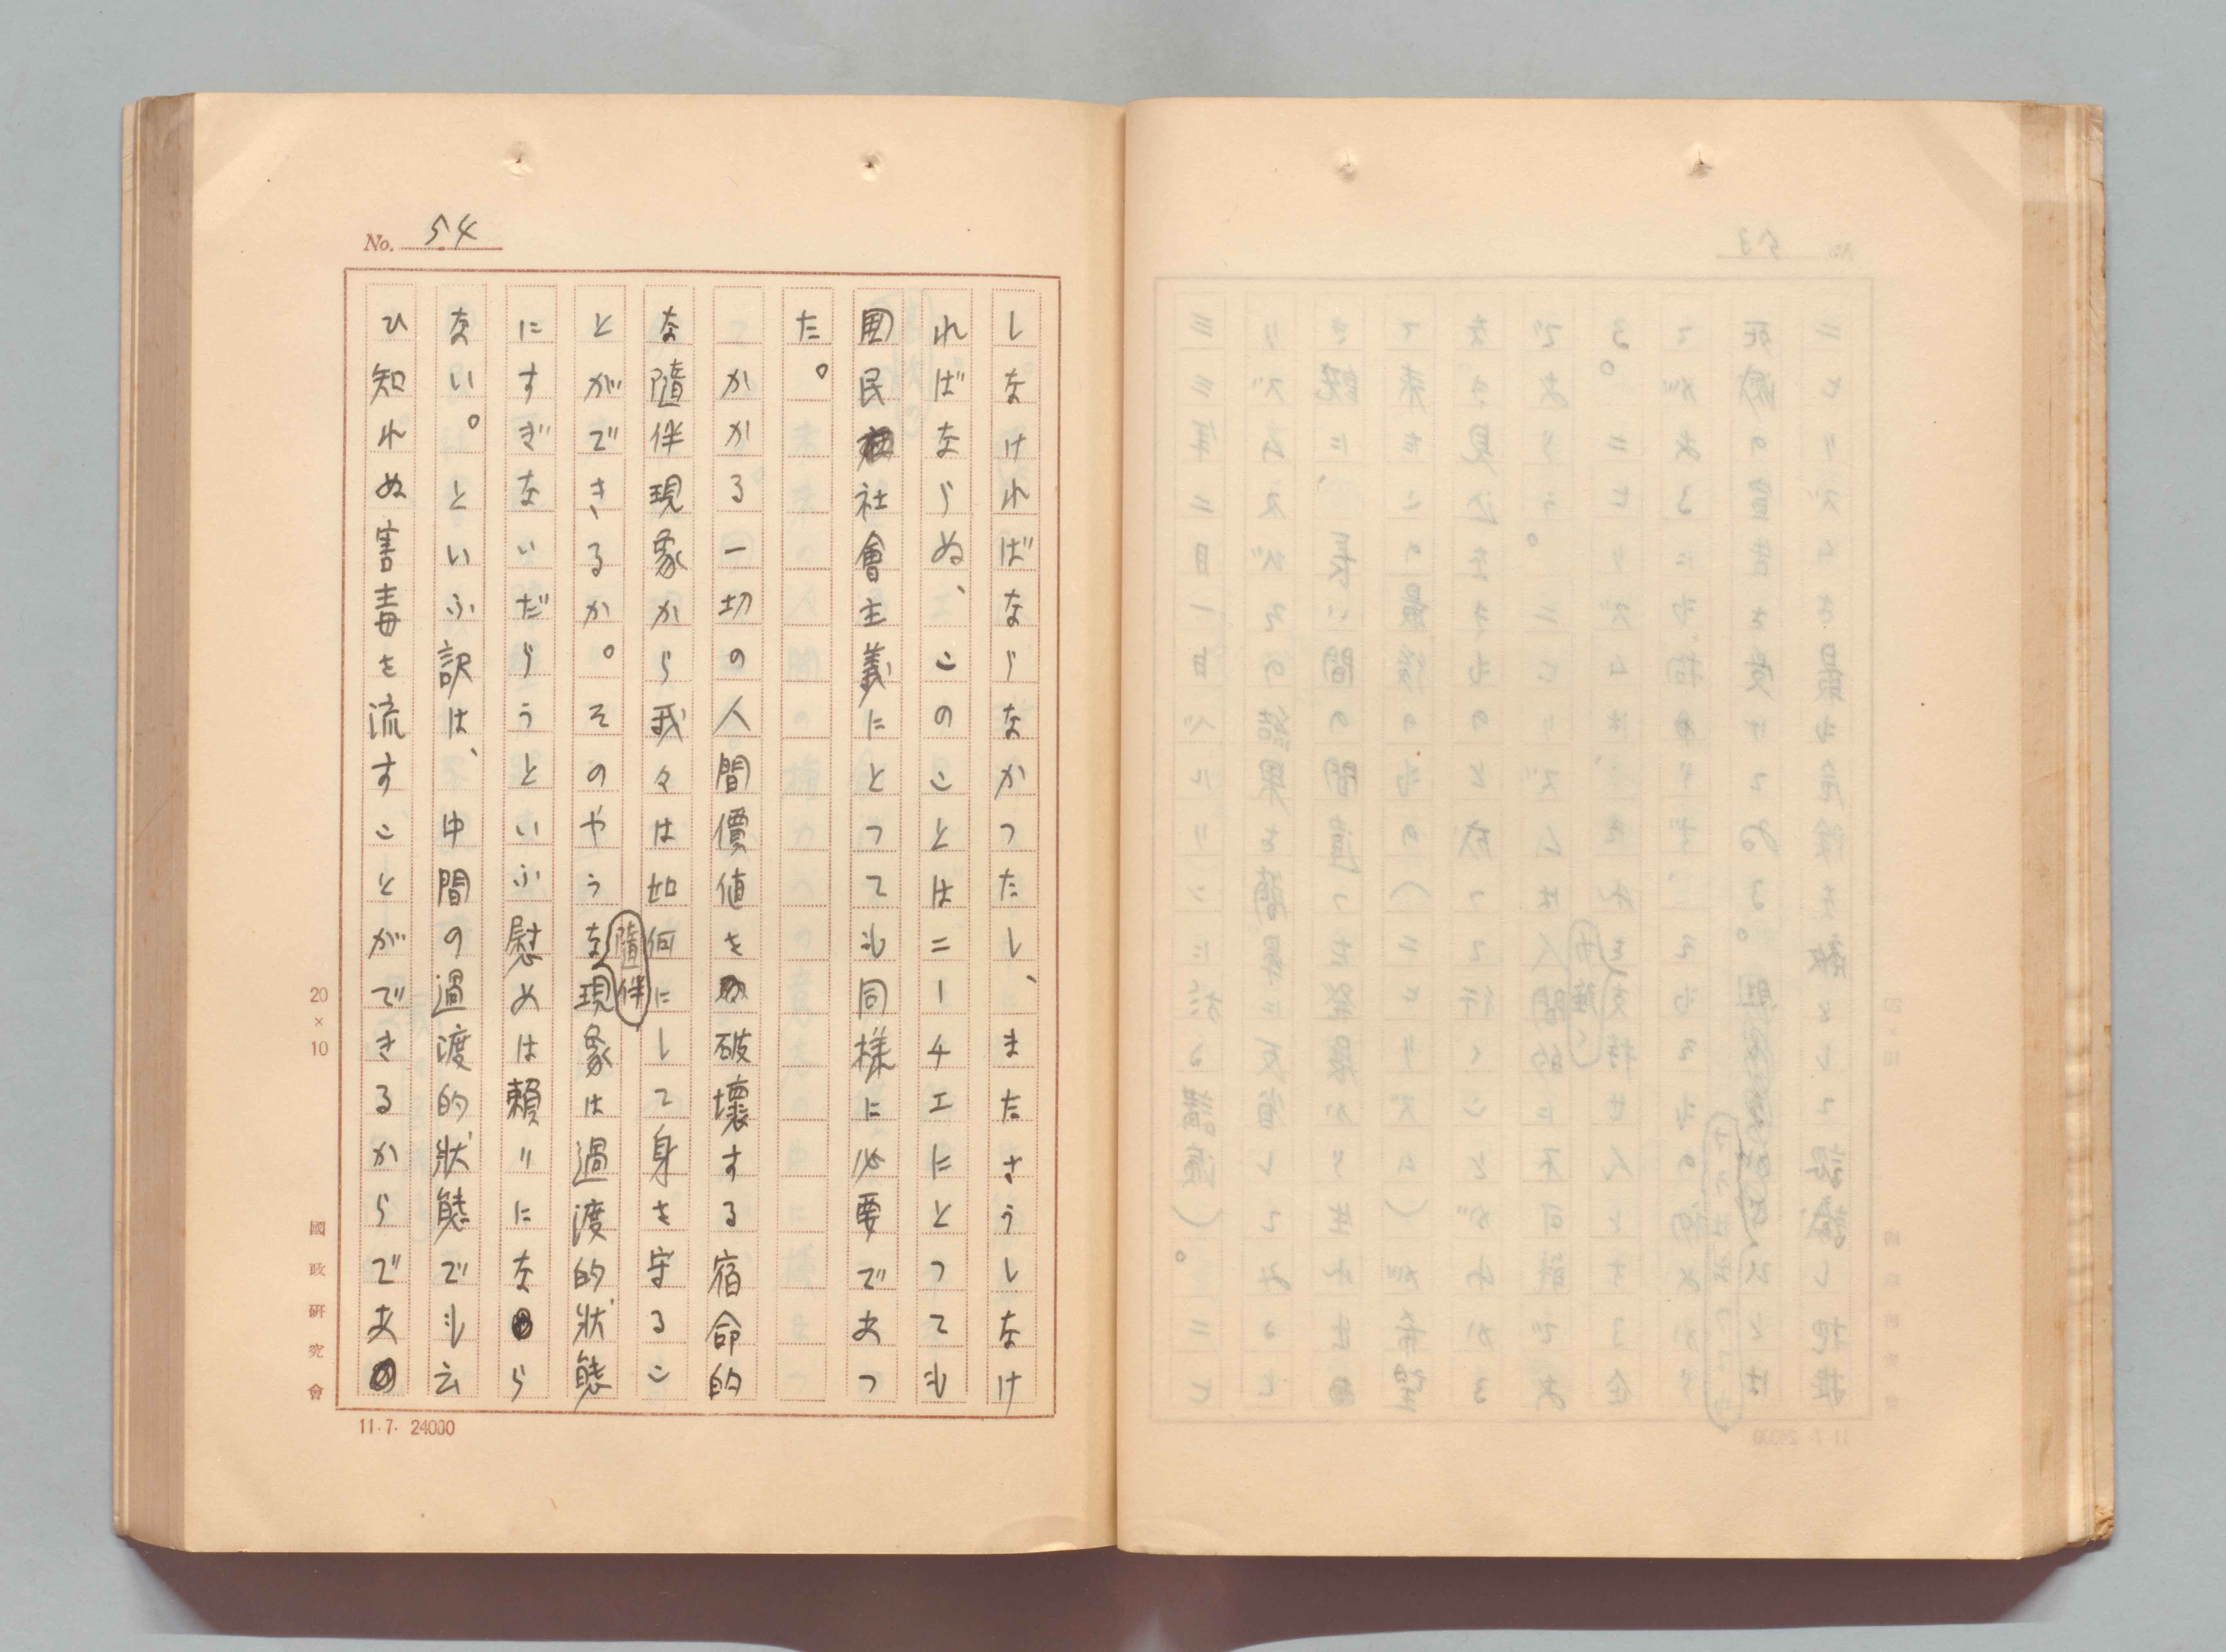 No. 54
しなければならなかつたし、またさうしなけ
ればならぬ、このことはニーチエにとつても
国民社會主義にとつても同様に必要であつ
た。
かかる一切の人間價値を破壊する宿命的
な隨伴現象から我々は如何にして身を守るこ
とができるか。そのやうな隨伴現象は過渡的狀態
にすぎないだらうといふ慰めは頼りになら
ない。といふ訳は、中間の過渡的狀態でも云
ひ知れぬ害毒を流すことができるからであ
20×10
國政研究會
11.7. 24000